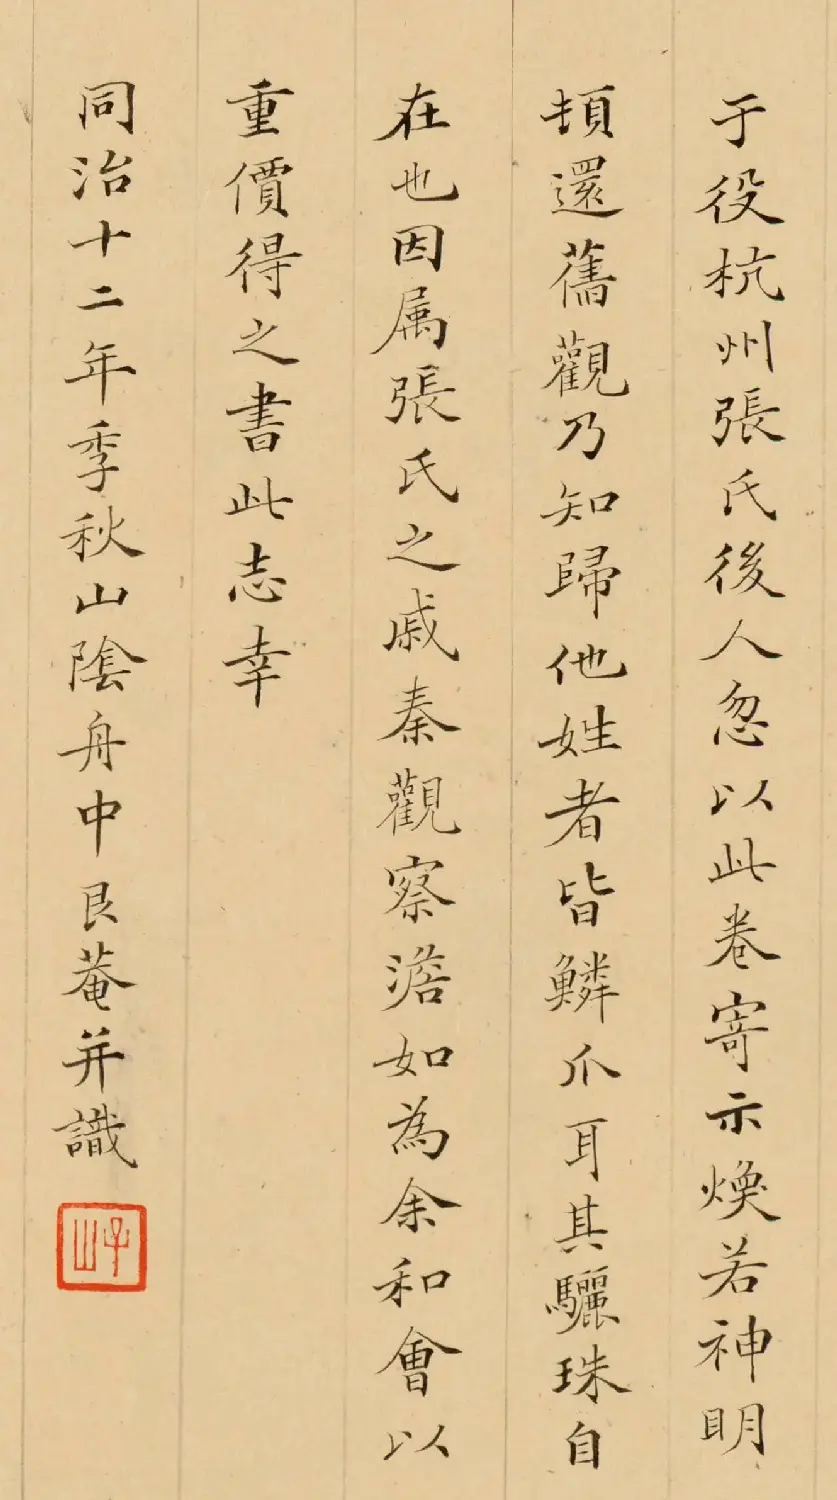 于役杭州張氏後人忽以此卷寄示煥若神明
頓還舊觀乃知歸他姓者皆鱗爪耳其驪珠自
在也因属張氏之戚秦觀察澹如為余和會以
重價得之書此志幸
同治十二年季秋山陰舟中艮菴并識
子山